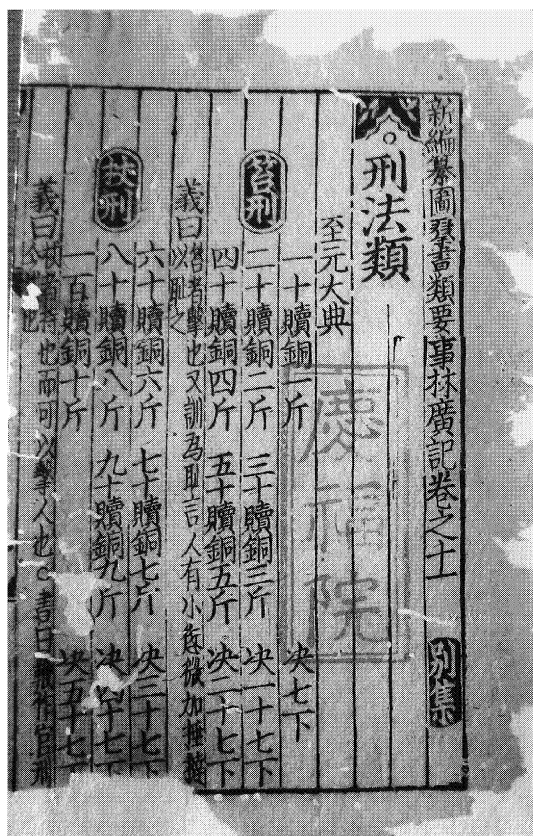 新編纂圖羣書類要事林廣記卷之十一 別集
刑法類
至元大典
慶福院
一十贖銅一斤 决七下
笞刑
二十贖銅二斤 三十贖銅三斤 决一十七下
四十贖銅四斤 五十贖銅五斤 决二十七下
義曰笞者擊也又訓為恥言人有小愆微加捶撻
以恥之
六十贖銅六斤 七十贖銅七斤 决三十七下
杖刑
八十贖銅八斤 九十贖銅九斤 决四十七下
一百贖銅十斤 决五十七下
義曰杖者持也而可以擊人也○書曰鞭作官刑